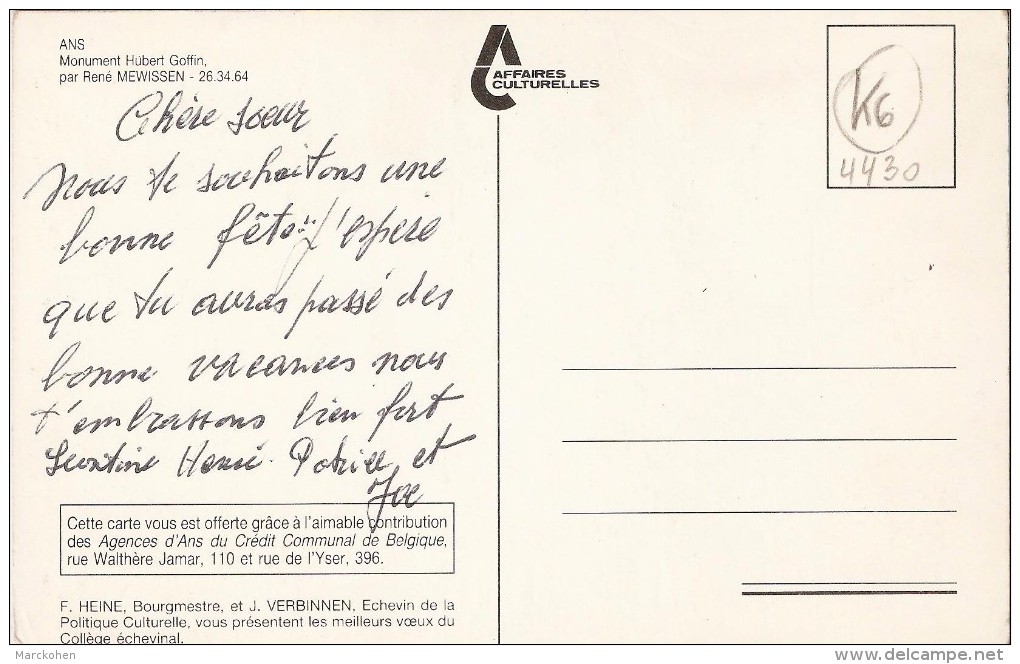 ANS
Monument Hübert Goffin,
par René MEWISSEN - 26.34.64
Chère soeur
Nous te souhaitons une
bonne fête. J'espère
que tu auras passé des
bonne vacances nous
t'embrassons bien fort
Léontine Henri. Patrice, et
Joe
Cette carte vous est offerte grâce à l'aimable contribution
des Agences d'Ans du Crédit Communal de Belgique,
rue Walthère Jamar, 110 et rue de l'Yser, 396.
F. HEINE, Bourgmestre, et J. VERBINNEN, Echevin de la
Politique Culturelle, vous présentent les meilleurs vœux du
Collège échevinal.
AFFAIRES
CULTURELLES
K6
4430
Marckohen
www.delcampe.net